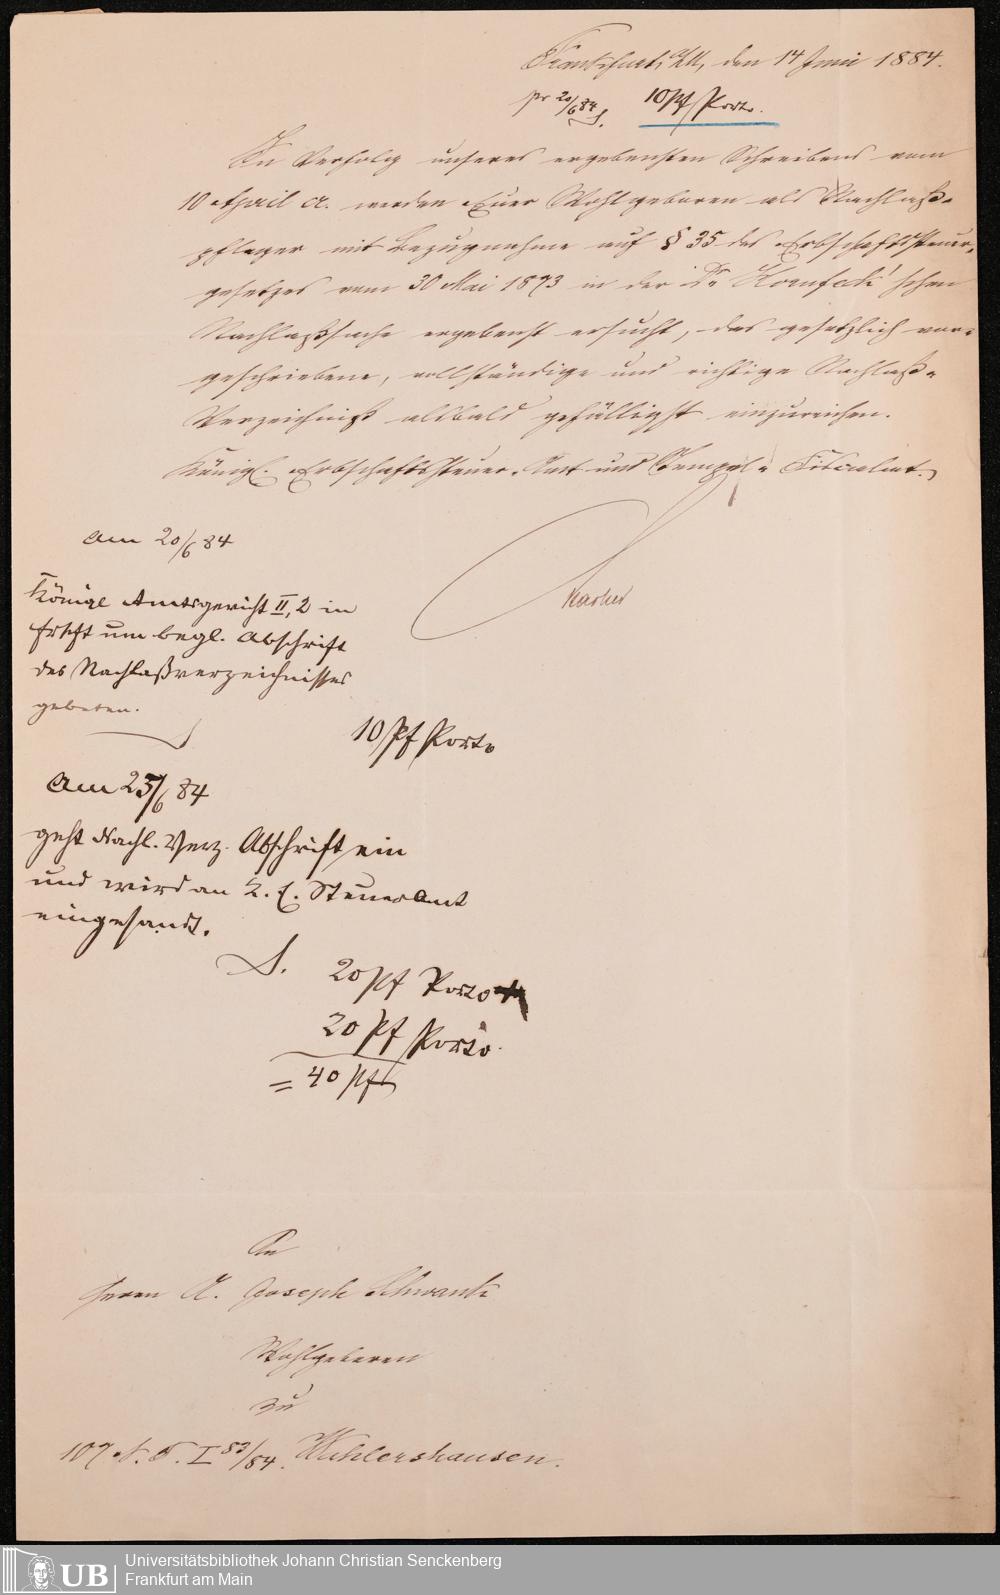 Frankfurt, a/M, den 14 Juni 1884.
pr 20/6 84 S. 10 Pf Porto.
In Verfolg unseres ergebensten Schreibens vom
10 April cr. werden Euer Wohlgeboren als Nachlaß-
pfleger mit Bezugnahme auf § 35 des Erbschaftssteuer-
gesetzes vom 30 Mai 1873 in der Dr schen
Nachlaßsache ergebenst ersucht, das gesetzlich vor-
geschriebene, vollständige und richtige Nachlaß-
Verzeichniß alsbald gefälligst einzureichen.
Königl. Erbschaftssteuer-Amt und Stempel-Fiscalat.
Am 20/6 84
Königl Amtsgericht II,2 in
Frkft um begl. Abschrift
des Nachlaßverzeichnisses
gebeten.
10 Pf Porto
Am 25/6 84
geht Nachl. Verz. Abschrift ein
und wird an K. E. Steueramt
eingesandt.
S. 20 Pf Porto
20 Pf Porto.
= 40 Pf
An
Herrn A. Joseph Schwank
Wohlgeboren
zu
107 N. T. I 83/84. Wehlershausen.
Universitätsbibliothek Johann Christian Senckenberg
UB Frankfurt am Main